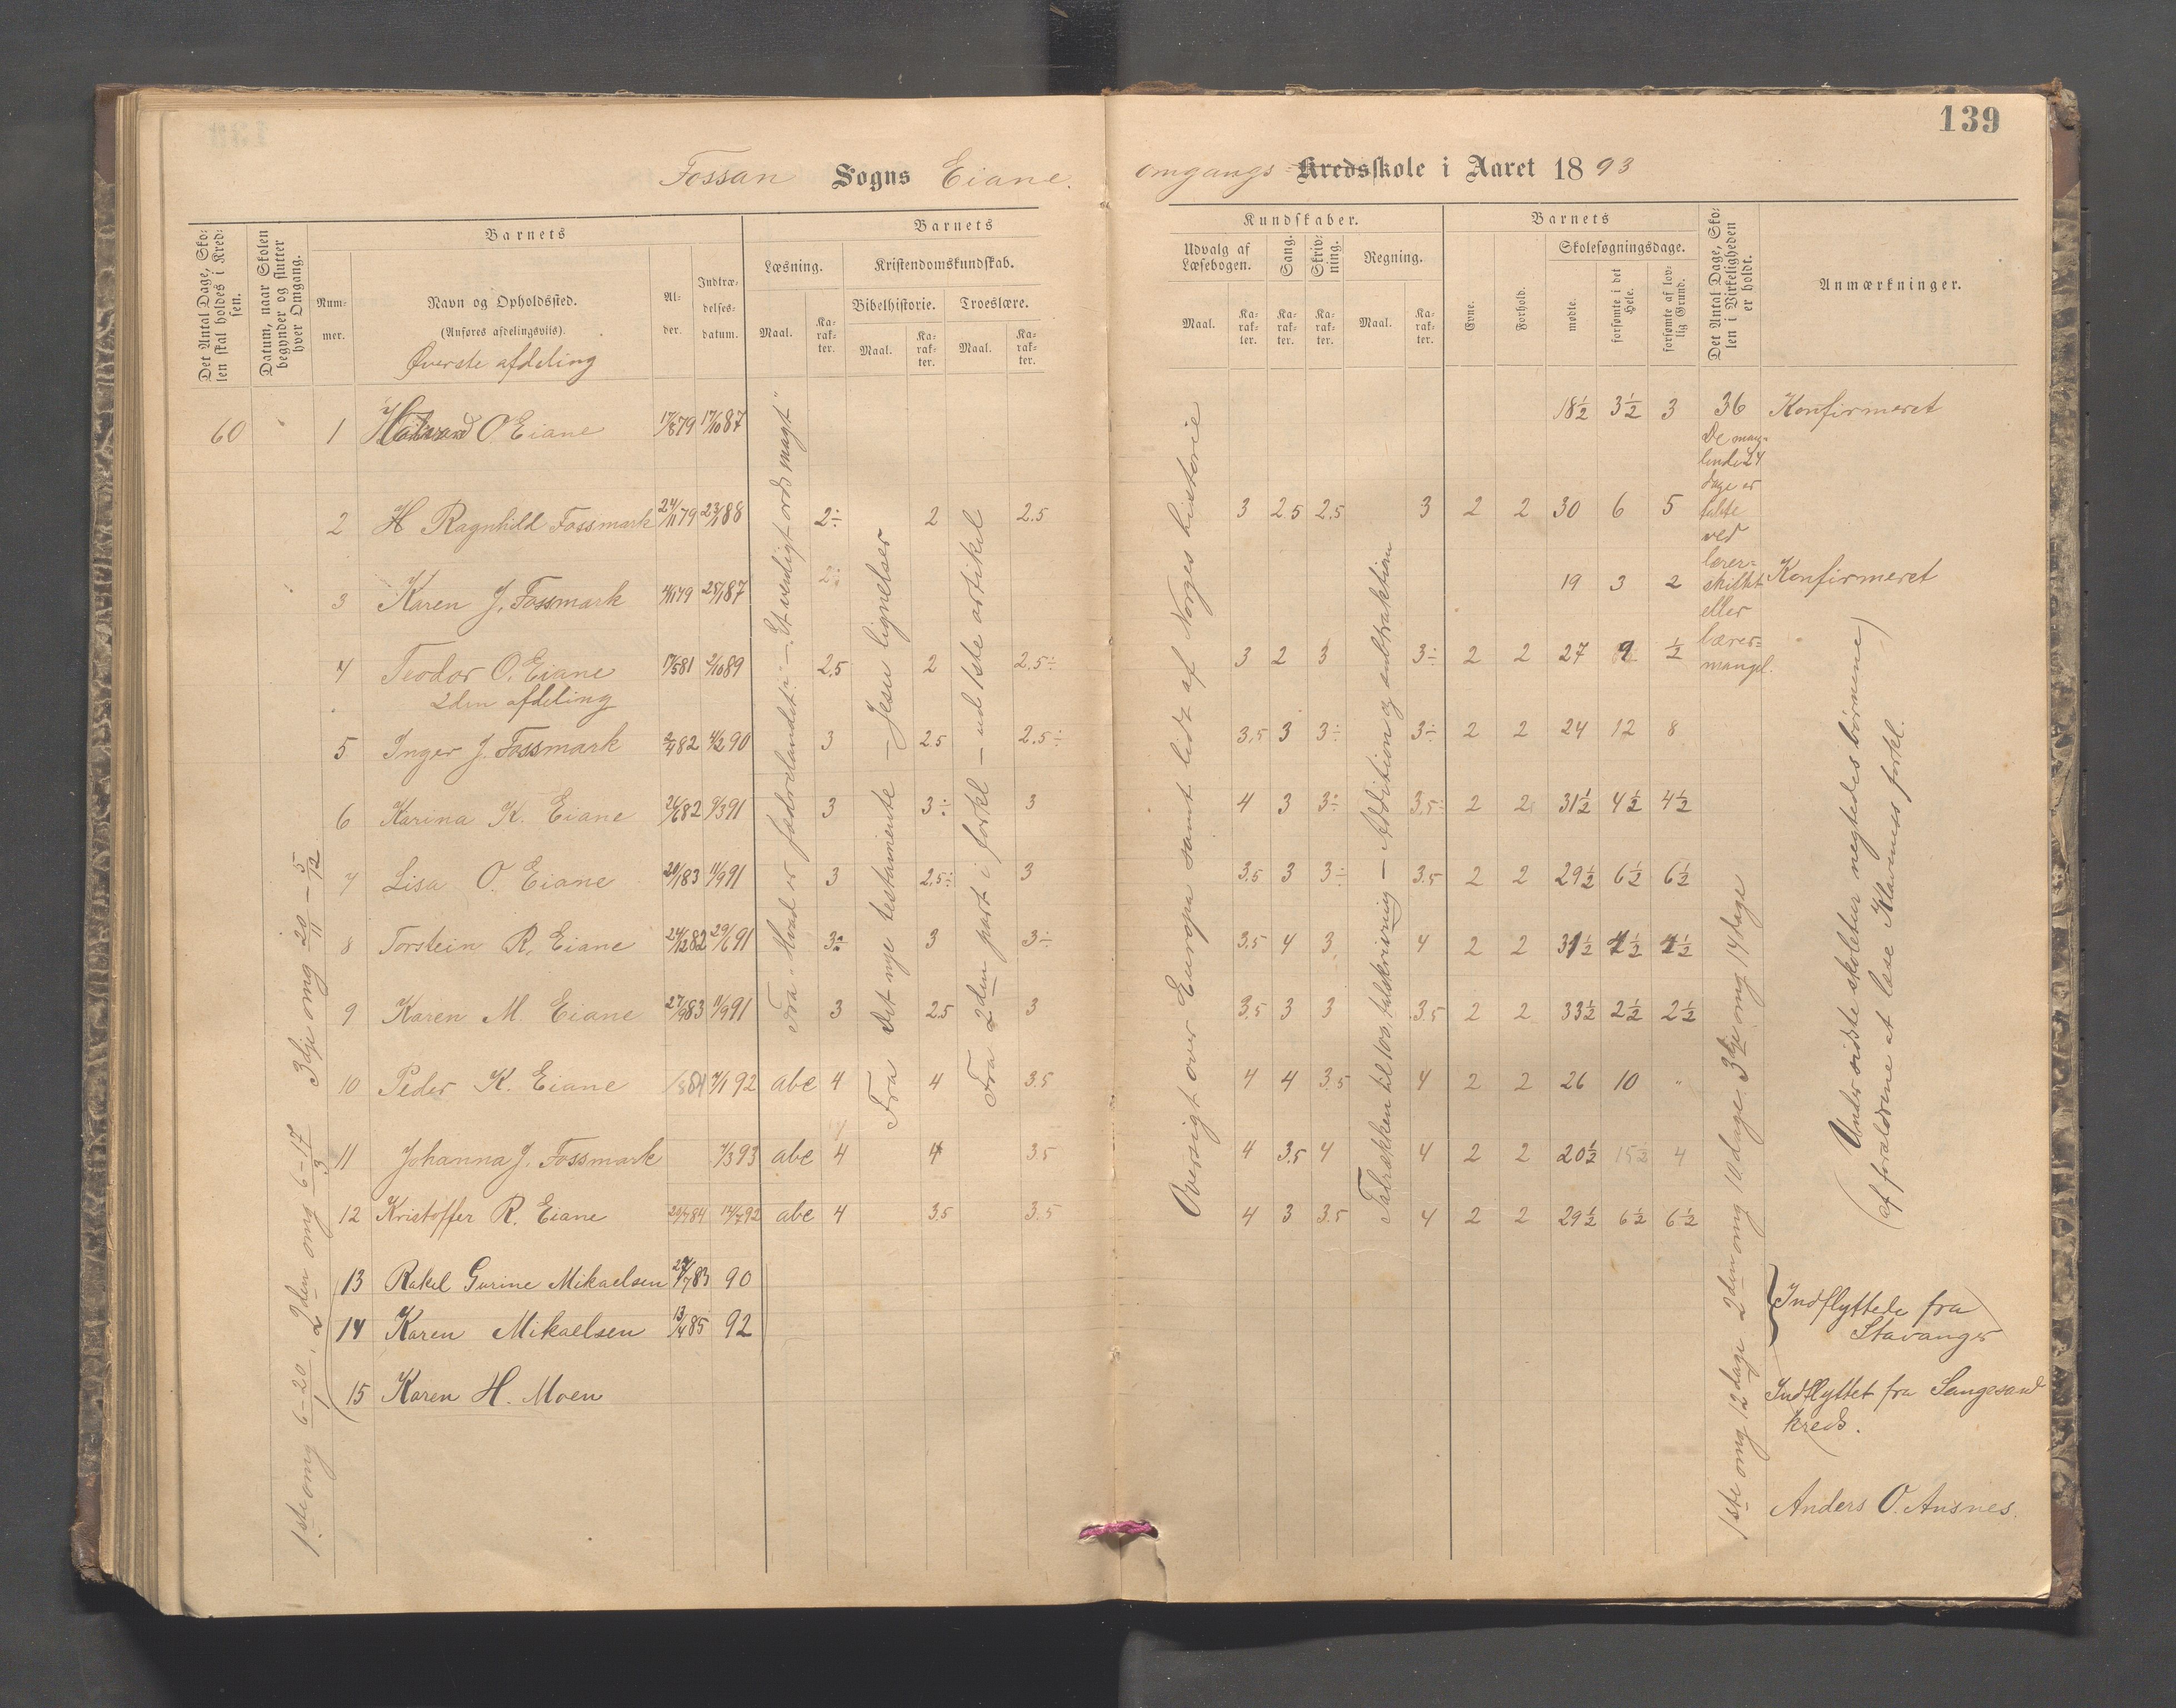 139
Fossan Sogns Eiane omgangs Kredsskole i Aaret 1893
Det Antal Dage, Skolen skal holdes i Kredsen.
Datum, naar Skolen begynder og slutter hver Omgang.
Barnets
Nummer.
Navn og Opholdssted.
(Anføres afdelingsvis).
Øverste afdeling
Alder.
Indtrædelsesdatum.
Barnets
Læsning.
Maal.
Karakter.
Kristendomskundskab.
Bibelhistorie.
Maal.
Karakter.
Troeslære.
Maal.
Karakter.
Kundskaber.
Udvalg af Læsebogen.
Maal.
Karakter.
Sang.
Karakter.
Skrivning.
Karakter.
Regning.
Maal.
Karakter.
Barnets
Evne.
Forhold.
Skolesøgningsdage.
mødte.
forsømte i det Hele.
forsømte af lovlig Grund.
Det Antal Dage, Skolen i Virkeligheden er holdt.
Anmærkninger.
60 1 O. Eiane 17/8 79 17/10 87 18½ 3½ 3 36 Konfirmeret
2 H Ragnhild Fossmark 24/11 79 23/1 88 2÷ 2 2.5 3 2.5 2.5 3 2 2 30 6 5
3 Karen J. Fossmark 25/1 87 19 3 2 Konfirmeret
4 Teodor O. Eiane 17/5 81 2/10 89 2.5 2 2.5÷ 3 2 3 3÷ 2 2 27 9 ½
De manglende 24 dage er faldte ved lærerskiftet eller lærermangel.
2den afdeling
5 Inger J. Fossmark 82 4/2 90 3 2.5 2.5÷ 3.5 3 3÷ 3÷ 2 2 24 12 8
6 Karina K. Eiane 26/6 82 9/3 91 3 3÷ 3 4 3 3÷ 3.5÷ 2 2 31½ 4½ 4½
7 Lisa O. Eiane 20/1 83 11/9 91 3 2.5÷ 3 3.5 3 3÷ 3.5 2 2 29½ 6½ 6½
8 Torstein R. Eiane 24/12 82 29/6 91 3÷ 3 3÷ 3.5 4 3 4 2 2 31½ 4½ 4½
9 Karen M. Eiane 27/9 83 11/9 91 3 2.5 3 3.5 3 3 3.5 2 2 33½ 2½ 2½
10 Peder K. Eiane 84 7/1 92 abc 4 4 3.5 4 4 3.5 4 2 2 26 10 "
11 Johanna J. Fossmark 7/3 93 abc 4 4 3.5 4 3.5 4 4 2 2 20½ 15½ 4
12 Kristoffer R. Eiane 29/7 84 14/7 92 abc 4 3.5 3.5 4 3 3.5 4 2 2 29½ 6½ 6½
13 Rakel Gurine Mikaelsen 83 90
14 Karen Mikaelsen 13/4 85 92
Indflyttede fra
Stavanger
15 Karen H. Moen
Indflyttet fra Sangesand
kreds.
1ste omg 6-20/1. 2den omg 6-17/3 3dje omg 20/11 - 5/12
Fra "Hvad er fædrelandet" - "Et venligt ords magt"
Fra Det nye testamente - Jesu lignelser
Fra 2den part i forkl - ud 1ste artikel
Oversigt over Europa samt lidt af Norges historie
Talrækken til 100, talskrivning - Addition og subtraktion
1ste omg 12 dage 2den omg 10 dage. 3dje omg 14 dage
(Under sidste skoletur negtedes børnene
af forældrene at læse Klaveness forkl.)
Anders O. Ansnes.